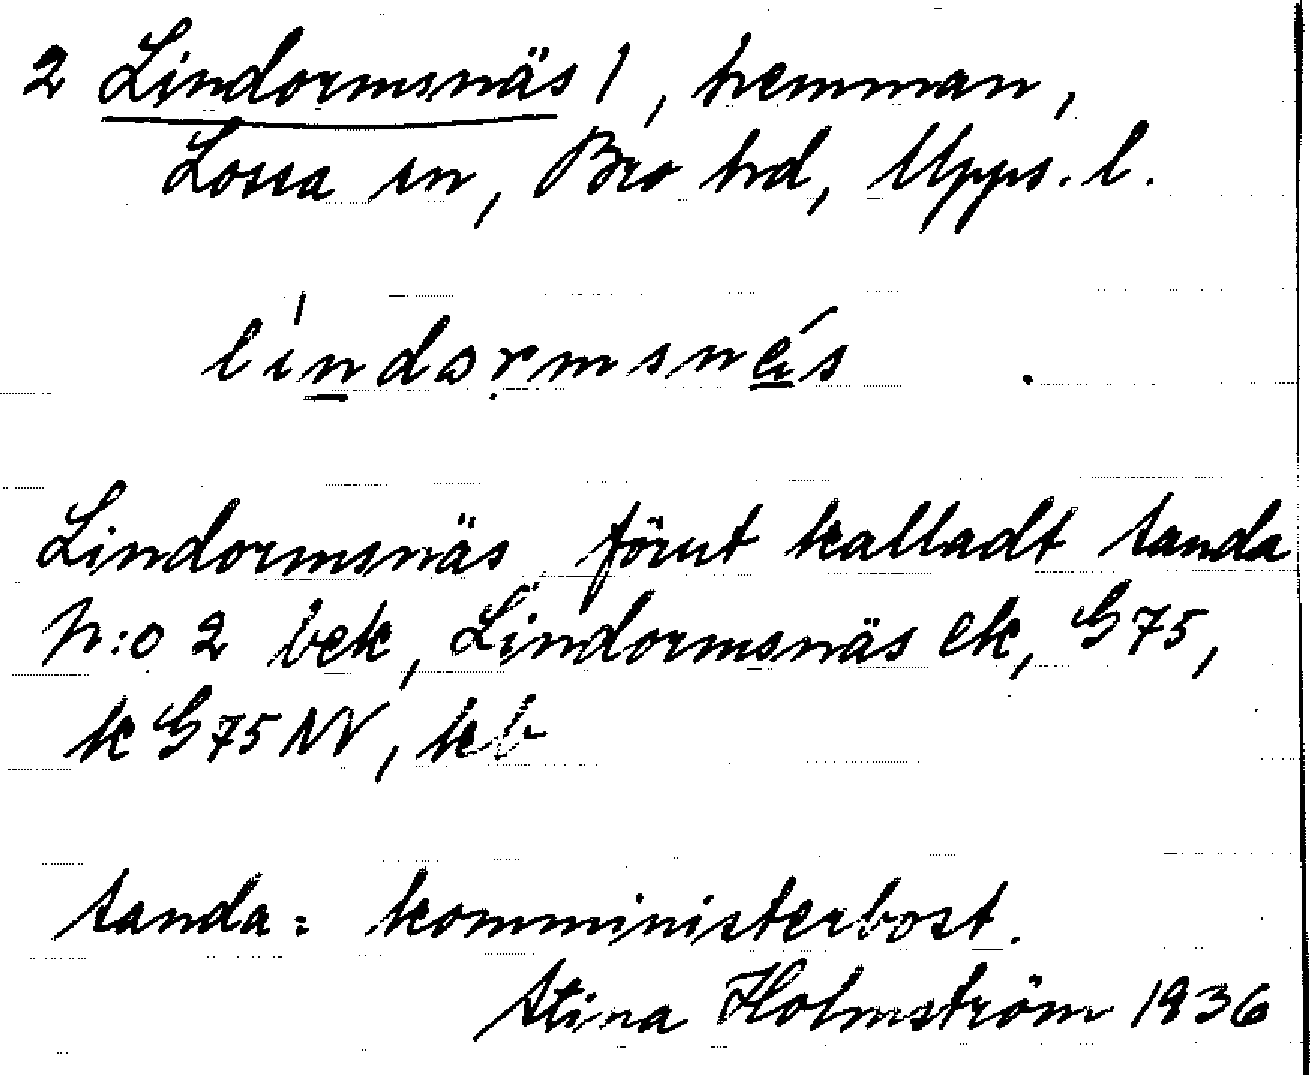 2 Lindormsnäs 1, hemman,
Lossa sn, Bro hd, Upps. l.
lìndormsnä́s .
Lindormsnäs förut kalladt Sanda
N:o 2 bek, Lindormsnäs ek, G 75,
k G 75 NV, kb
Sanda: komministerbost.
Stina Holmström 1936